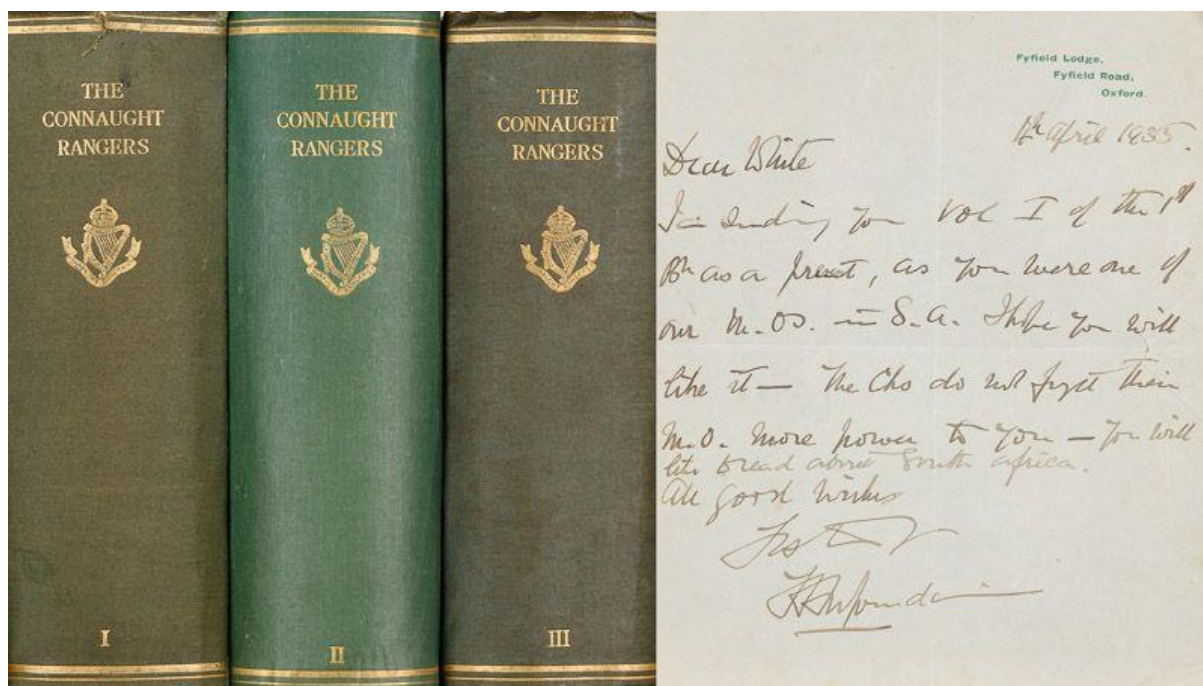 THE
CONNAUGHT
RANGERS
I
THE
CONNAUGHT
RANGERS
II
THE
CONNAUGHT
RANGERS
III
Fyfield Lodge,
Fyfield Road,
Oxford.
April 1935.
Dear White
I'm sending you Vol I of the 1st
Bn as a present, as you were one of
our M.Os. in S.A. I hope you will
like it — The do not forget their
M.O. More power to you — You will
like to read about South Africa.
All good wishes